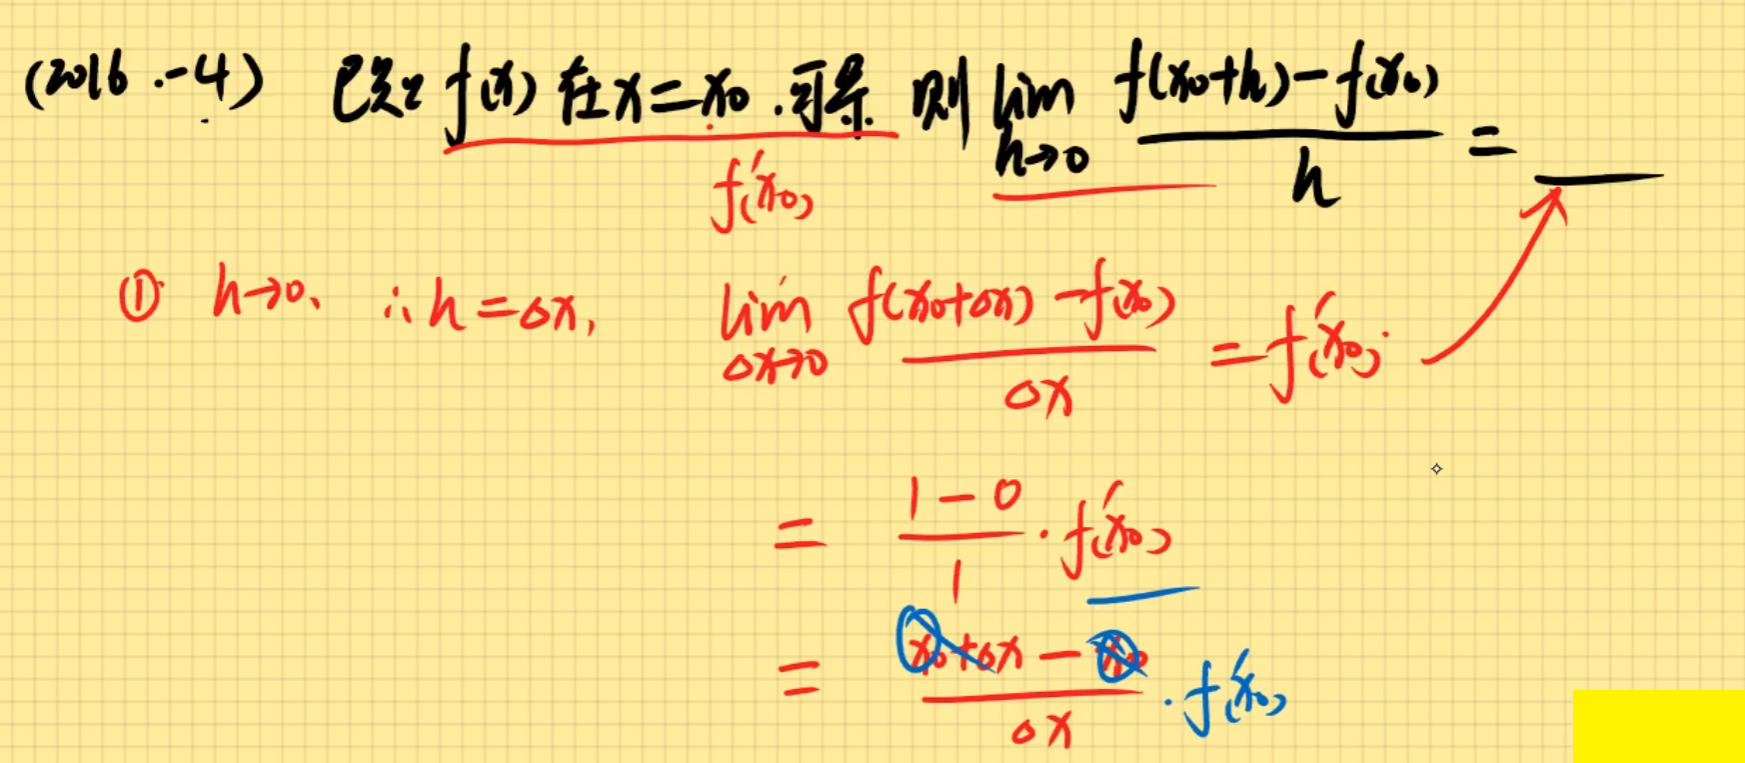 (2016.-4) 已知 f(x) 在 x=x₀.可导 则 lim h→0 (f(x₀+h)-f(x₀))/h = ___
f'(x₀)
① h→0, ∴h=△x, lim △x→0 (f(x₀+△x)-f(x₀))/△x = f'(x₀).
= (1-0)/1 · f'(x₀)
= (x₀+△x-x₀)/△x · f'(x₀)